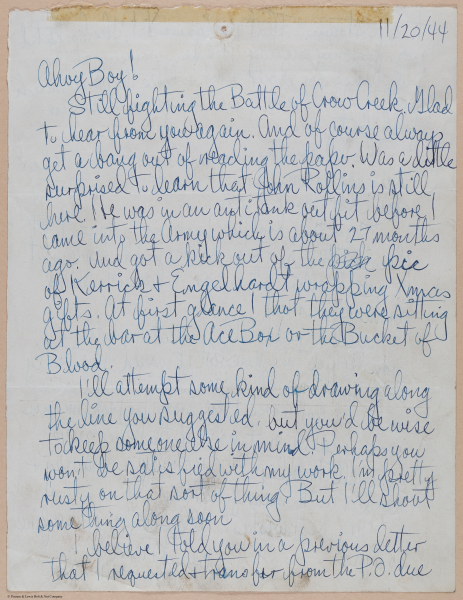 11/20/44
Ahoy Boy!
Still fighting the Battle of Crow Creek. Glad
to hear from you again. And of course always
get a bang out of reading the paper. Was a little
surprised to learn that John Rollins is still
here! He was in an anti tank outfit before I
came into the Army which is about 27 months
ago. And got a kick out of the pic
of Kerrick + Engelhardt wrapping Xmas
gifts. At first glance I that they were sitting
at the bar at the Ace Box or the Bucket of
Blood.
I'll attempt some kind of drawing along
the line you suggested, but you'd be wise
to keep someone else in mind. Perhaps you
won't be satisfied with my work. I'm pretty
rusty on that sort of thing. But I'll shoot
something along soon
I believe I told you in a previous letter
that I requested a transfer from the P.O. due